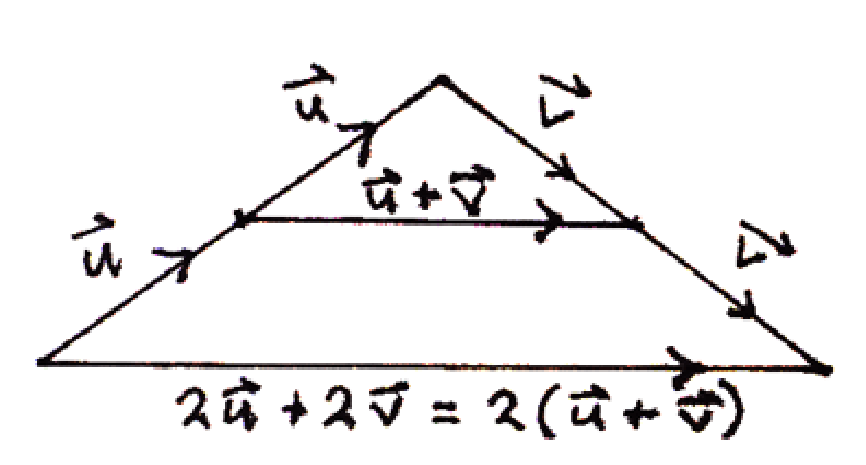 u⃗
v⃗
u⃗ + v⃗
u⃗
v⃗
2u⃗ + 2v⃗ = 2(u⃗ + v⃗)